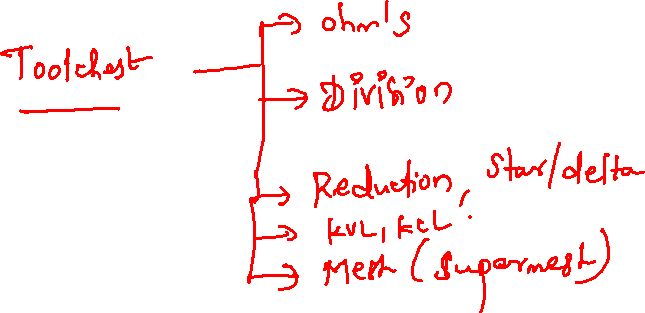 Toolchest
ohm's
Division
Reduction, Star/delta
KVL, KCL
Mesh (Supermesh)